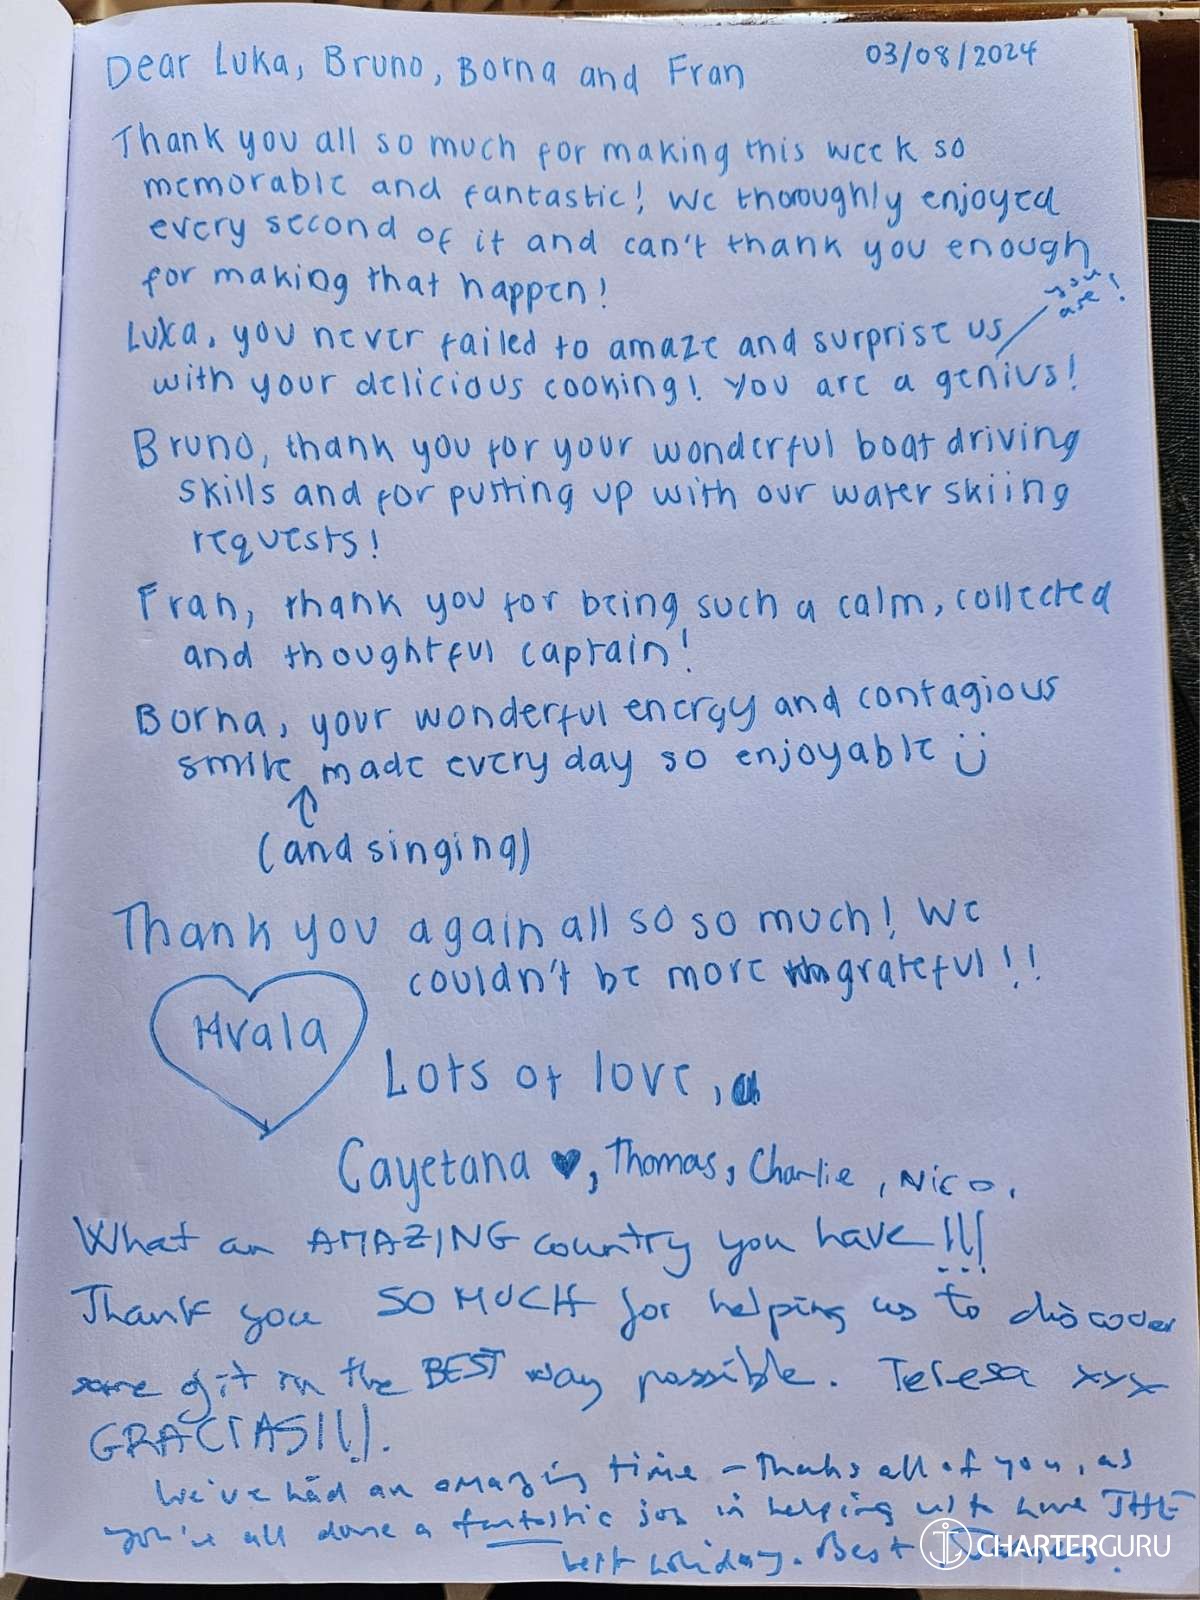 03/08/2024
Dear Luka, Bruno, Borna and Fran
Thank you all so much for making this week so
memorable and fantastic! We thoroughly enjoyed
every second of it and can't thank you enough
for making that happen!
you
are!
Luka, you never failed to amaze and surprise us
with your delicious cooking! You are a genius!
Bruno, thank you for your wonderful boat driving
skills and for putting up with our water skiing
requests!
Fran, thank you for being such a calm, collected
and thoughtful captain!
Borna, your wonderful energy and contagious
smile made every day so enjoyable
(and singing)
Thank you again all so so much! We
couldn't be more grateful!!
Hvala
Lots of love,
Cayetana ♥, Thomas, Charlie, Nico.
What an AMAZING country you have!!!
Thank you SO MUCH for helping us to discover
some of it in the BEST way possible. Teresa xxx
GRACIAS!!!.
We've had an amazing time - thanks all of you, as
you've all done a fantastic job in helping us to have THE
best holiday. Best
CHARTERGURU